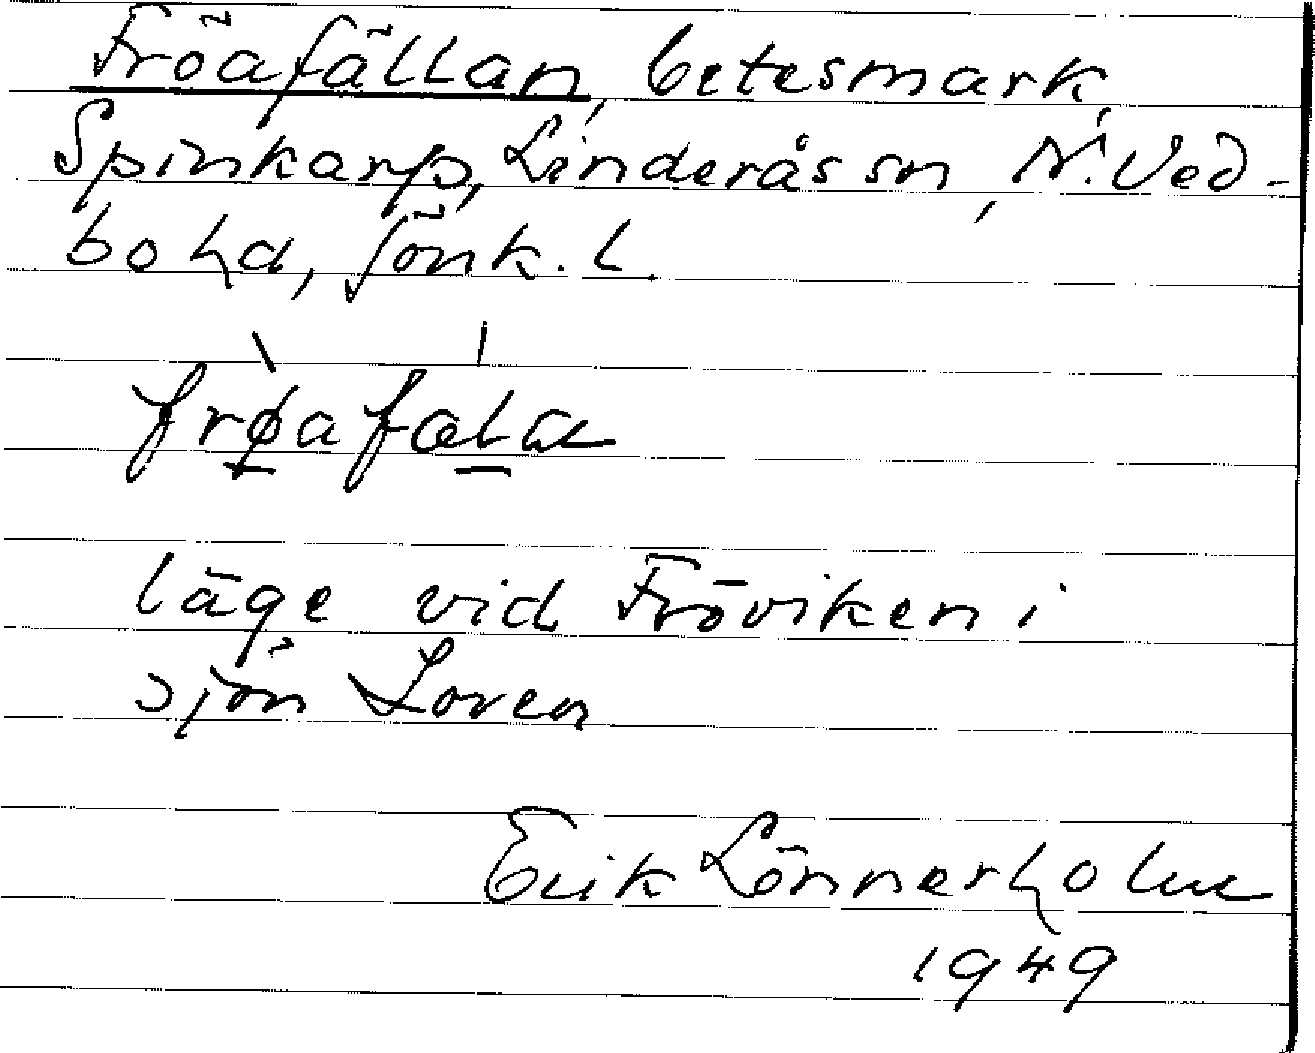 Fröafällan, betesmark,
Spinkarp, Linderås sn, N. Ved-
bo hd, Jönk. l.
frøafæla
läge vid Fröviken i
sjön Loren
Erik Lönnerholm
1949